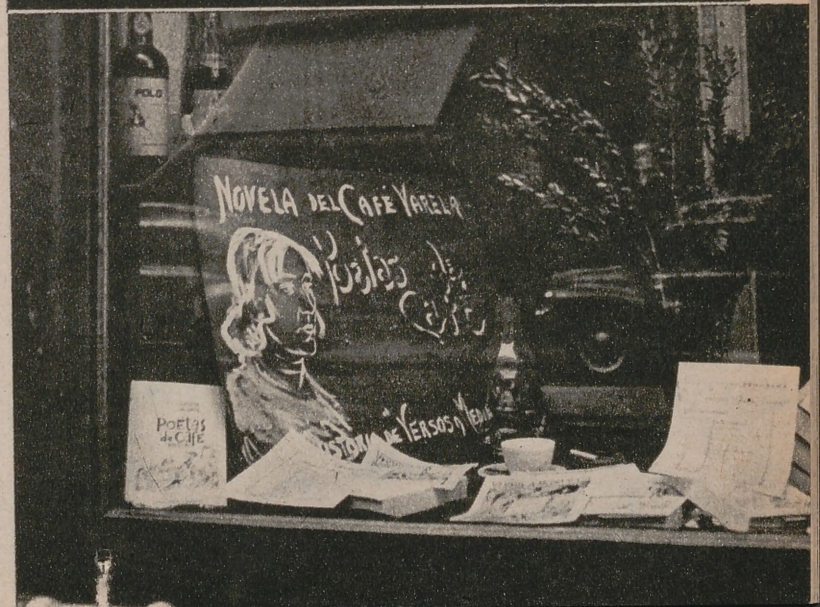 POLO
NOVELA DEL CAFÉ VARELA
Poetas de
Café
HISTORIA DE VERSOS A MEDIA
POETAS
de CAFE